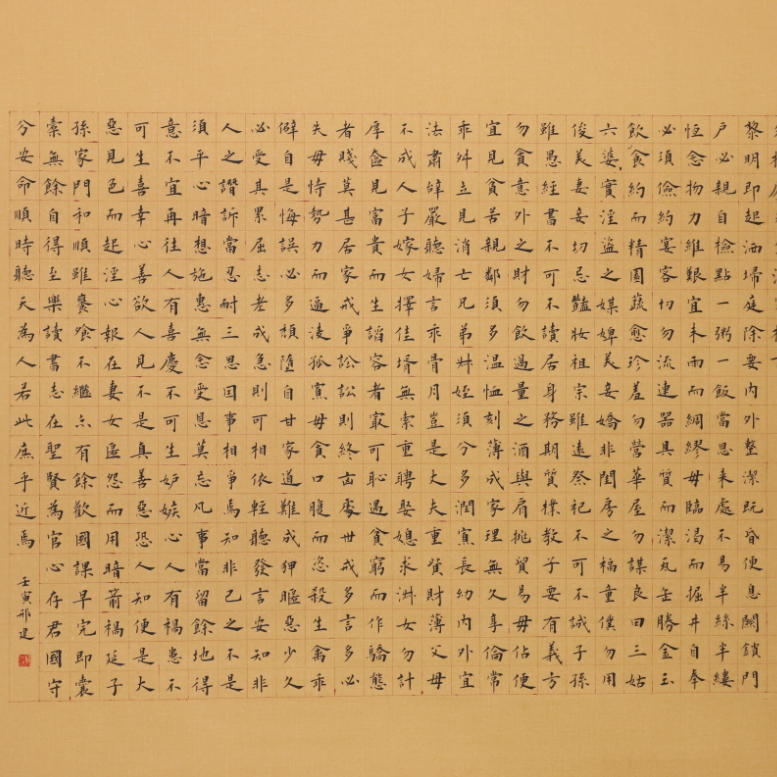 黎明即起洒掃庭除要内外整潔既昏便息關鎖門
户必親自檢點一粥一飯當思来處不易半絲半縷
恒念物力維艱宜未雨而綢繆毋臨渴而掘井自奉
必須儉約宴客切勿流連器具質而潔瓦缶勝金玉
飲食約而精園蔬愈珍羞勿營華屋勿謀良田三姑
六婆實淫盜之媒婢美妾嬌非閨房之福童僕勿用
俊美妻妾切忌豔妝祖宗雖遠祭祀不可不誠子孫
雖愚經書不可不讀居身務期質樸教子要有義方
勿貪意外之財勿飲過量之酒與肩挑貿易毋佔便
宜見貧苦親鄰須多溫恤刻薄成家理無久享倫常
乖舛立見消亡兄弟叔姪須分多潤寡長幼内外宜
法肅辭嚴聽婦言乖骨月豈是丈夫重貲財薄父母
不成人子嫁女擇佳壻無索重聘娶媳求淑女勿計
厚奩見富貴而生諂容者最可恥遇貧窮而作驕態
者賤莫甚居家戒爭訟訟則終凶處世戒多言多必
失毋恃勢力而逼凌孤寡毋貪口腹而恣殺生禽乖
僻自是悔誤必多頹隨自甘家道難成狎暱惡少久
必受其累屈志老成急則可相依輕聽發言安知非
人之譖訴當忍耐三思因事相爭焉知非己之不是
須平心暗想施惠無念受恩莫忘凡事當留餘地得
意不宜再往人有喜慶不可生妒嫉心人有禍患不
可生喜幸心善欲人見不是真善惡恐人知便是大
惡見色而起淫心報在妻女匿怨而用暗箭禍延子
孫家門和順雖饔飧不繼亦有餘歡國課早完即囊
橐無餘自得至樂讀書志在聖賢為官心存君國守
分安命順時聽天為人若此庶乎近焉
壬寅